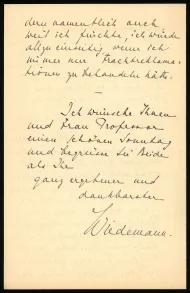 dern namentlich auch
weil ich fürchte, ich würde
allzu einseitig wenn ich
immer nur
zu behandeln hätte.
—
Ich wünsche Ihnen
und Frau Professor
einen schönen Sonntag
und begrüsse Sie Beide
als Ihr
ganz ergebener und
dankbarster
Wiedemann.